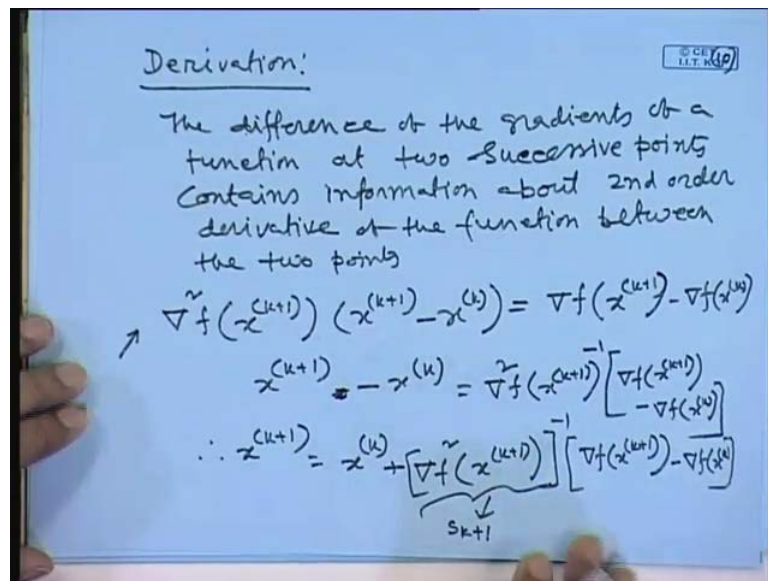 Derivation:
© CET
I.I.T. KGP
The difference of the gradients of a
function at two successive points
contains information about 2nd order
derivative of the function between
the two points
∇²f(x^(k+1)) (x^(k+1) - x^(k)) = ∇f(x^(k+1)) - ∇f(x^(k))
x^(k+1) - x^(k) = ∇²f(x^(k+1))^-1 [∇f(x^(k+1)) - ∇f(x^(k))]
∴ x^(k+1) = x^(k) + [∇²f(x^(k+1))]^-1 [∇f(x^(k+1)) - ∇f(x^(k))]
S_k+1